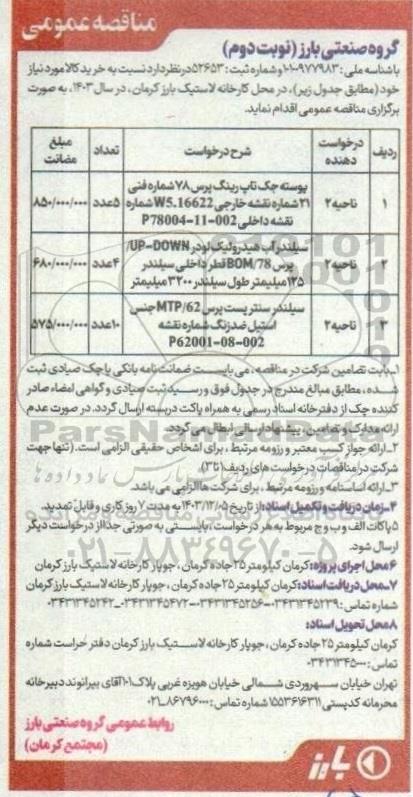 مناقصه عمومی
گروه صنعتی بارز (نوبت دوم)
با شناسه ملی : ۱۰۱۰۰۹۷۷۹۸۳ و شماره ثبت : ۵۲۶۵۳ در نظر دارد نسبت به خرید کالا مورد نیاز
خود (مطابق جدول زیر) ، در محل کارخانه لاستیک بارز کرمان ، در سال ۱۴۰۳، به صورت
برگزاری مناقصه عمومی اقدام نماید.
ردیف درخواست دهنده شرح درخواست تعداد مبلغ ضمانت
۱ ناحیه ۲ پوسته جک تاپ رینگ پرس ۷۸ شماره فنی ۲۱ شماره نقشه خارجی W5.16622 شماره نقشه داخلی P78004-11-002 ۵ عدد ۸۵۰/۰۰۰/۰۰۰
۲ ناحیه ۲ سیلندر آب هیدرولیک لودر UP-DOWN/ پرس BOM/78 قطر داخلی سیلندر ۱۲۵ میلیمتر طول سیلندر ۳۲۰۰ میلیمتر ۴ عدد ۶۸۰/۰۰۰/۰۰۰
۳ ناحیه ۲ سیلندر سنتر پست پرس MTP/62 جنس استیل ضد زنگ شماره نقشه P62001-08-002 ۱۰ عدد ۵۷۵/۰۰۰/۰۰۰
۱_ بابت تضامین شرکت در مناقصه ، می بایست ضمانت نامه بانکی یا چک صیادی ثبت
شده ، مطابق مبالغ مندرج در جدول فوق و رسید ثبت صیادی و گواهی امضاء صادر
کننده چک از دفترخانه اسناد رسمی به همراه پاکت دربسته ارسال گردد. در صورت عدم
ارائه مدارک و تضامین ، پیشنهاد ارسالی ابطال می گردد.
۲_ ارائه جواز کسب معتبر و رزومه مرتبط ، برای اشخاص حقیقی الزامی است. (تنها جهت
شرکت در مناقصات درخواست های ردیف ۱ تا ۳)
۳_ ارائه اساسنامه و رزومه مرتبط ، برای شرکت ها الزامی می باشد.
۴_ زمان دریافت و تکمیل اسناد: از تاریخ ۱۴۰۳/۱۲/۰۵ به مدت ۷ روز کاری و قابل تمدید.
۵_ پاکات الف و ب و ج مربوط به هر درخواست ، بایستی به صورتی جدا از درخواست دیگر
ارسال شود.
۶_ محل اجرای پروژه: کرمان کیلومتر ۲۵ جاده کرمان ، جوپار کارخانه لاستیک بارز کرمان
۷_ محل دریافت اسناد: کرمان کیلومتر ۲۵ جاده کرمان ، جوپار کارخانه لاستیک بارز کرمان
شماره تماس : ۰۳۴۳۱۳۴۵۲۳۹-۰۳۴۳۱۳۴۵۲۵۶-۰۳۴۳۱۳۴۵۴۷۲-۰۳۴۳۱۳۴۵۲۴۲
۸_ محل تحویل اسناد:
کرمان کیلومتر ۲۵ جاده کرمان ، جوپار کارخانه لاستیک بارز کرمان دفتر حراست شماره
تماس : ۰۳۴۳۱۳۴۵۰۰۰
تهران خیابان سهروردی شمالی خیابان هویزه غربی پلاک ۱۰۱ آقای بیرانوند دبیرخانه
محرمانه کدپستی ۱۵۵۳۶۱۶۳۱۱ شماره تماس : ۸۶۷۹۶۰۰۰-۰۲۱
روابط عمومی گروه صنعتی بارز
(مجتمع کرمان)
بارز
ParsNamadData
۰۲۱-۸۸۳۴۹۶۷۰-۵